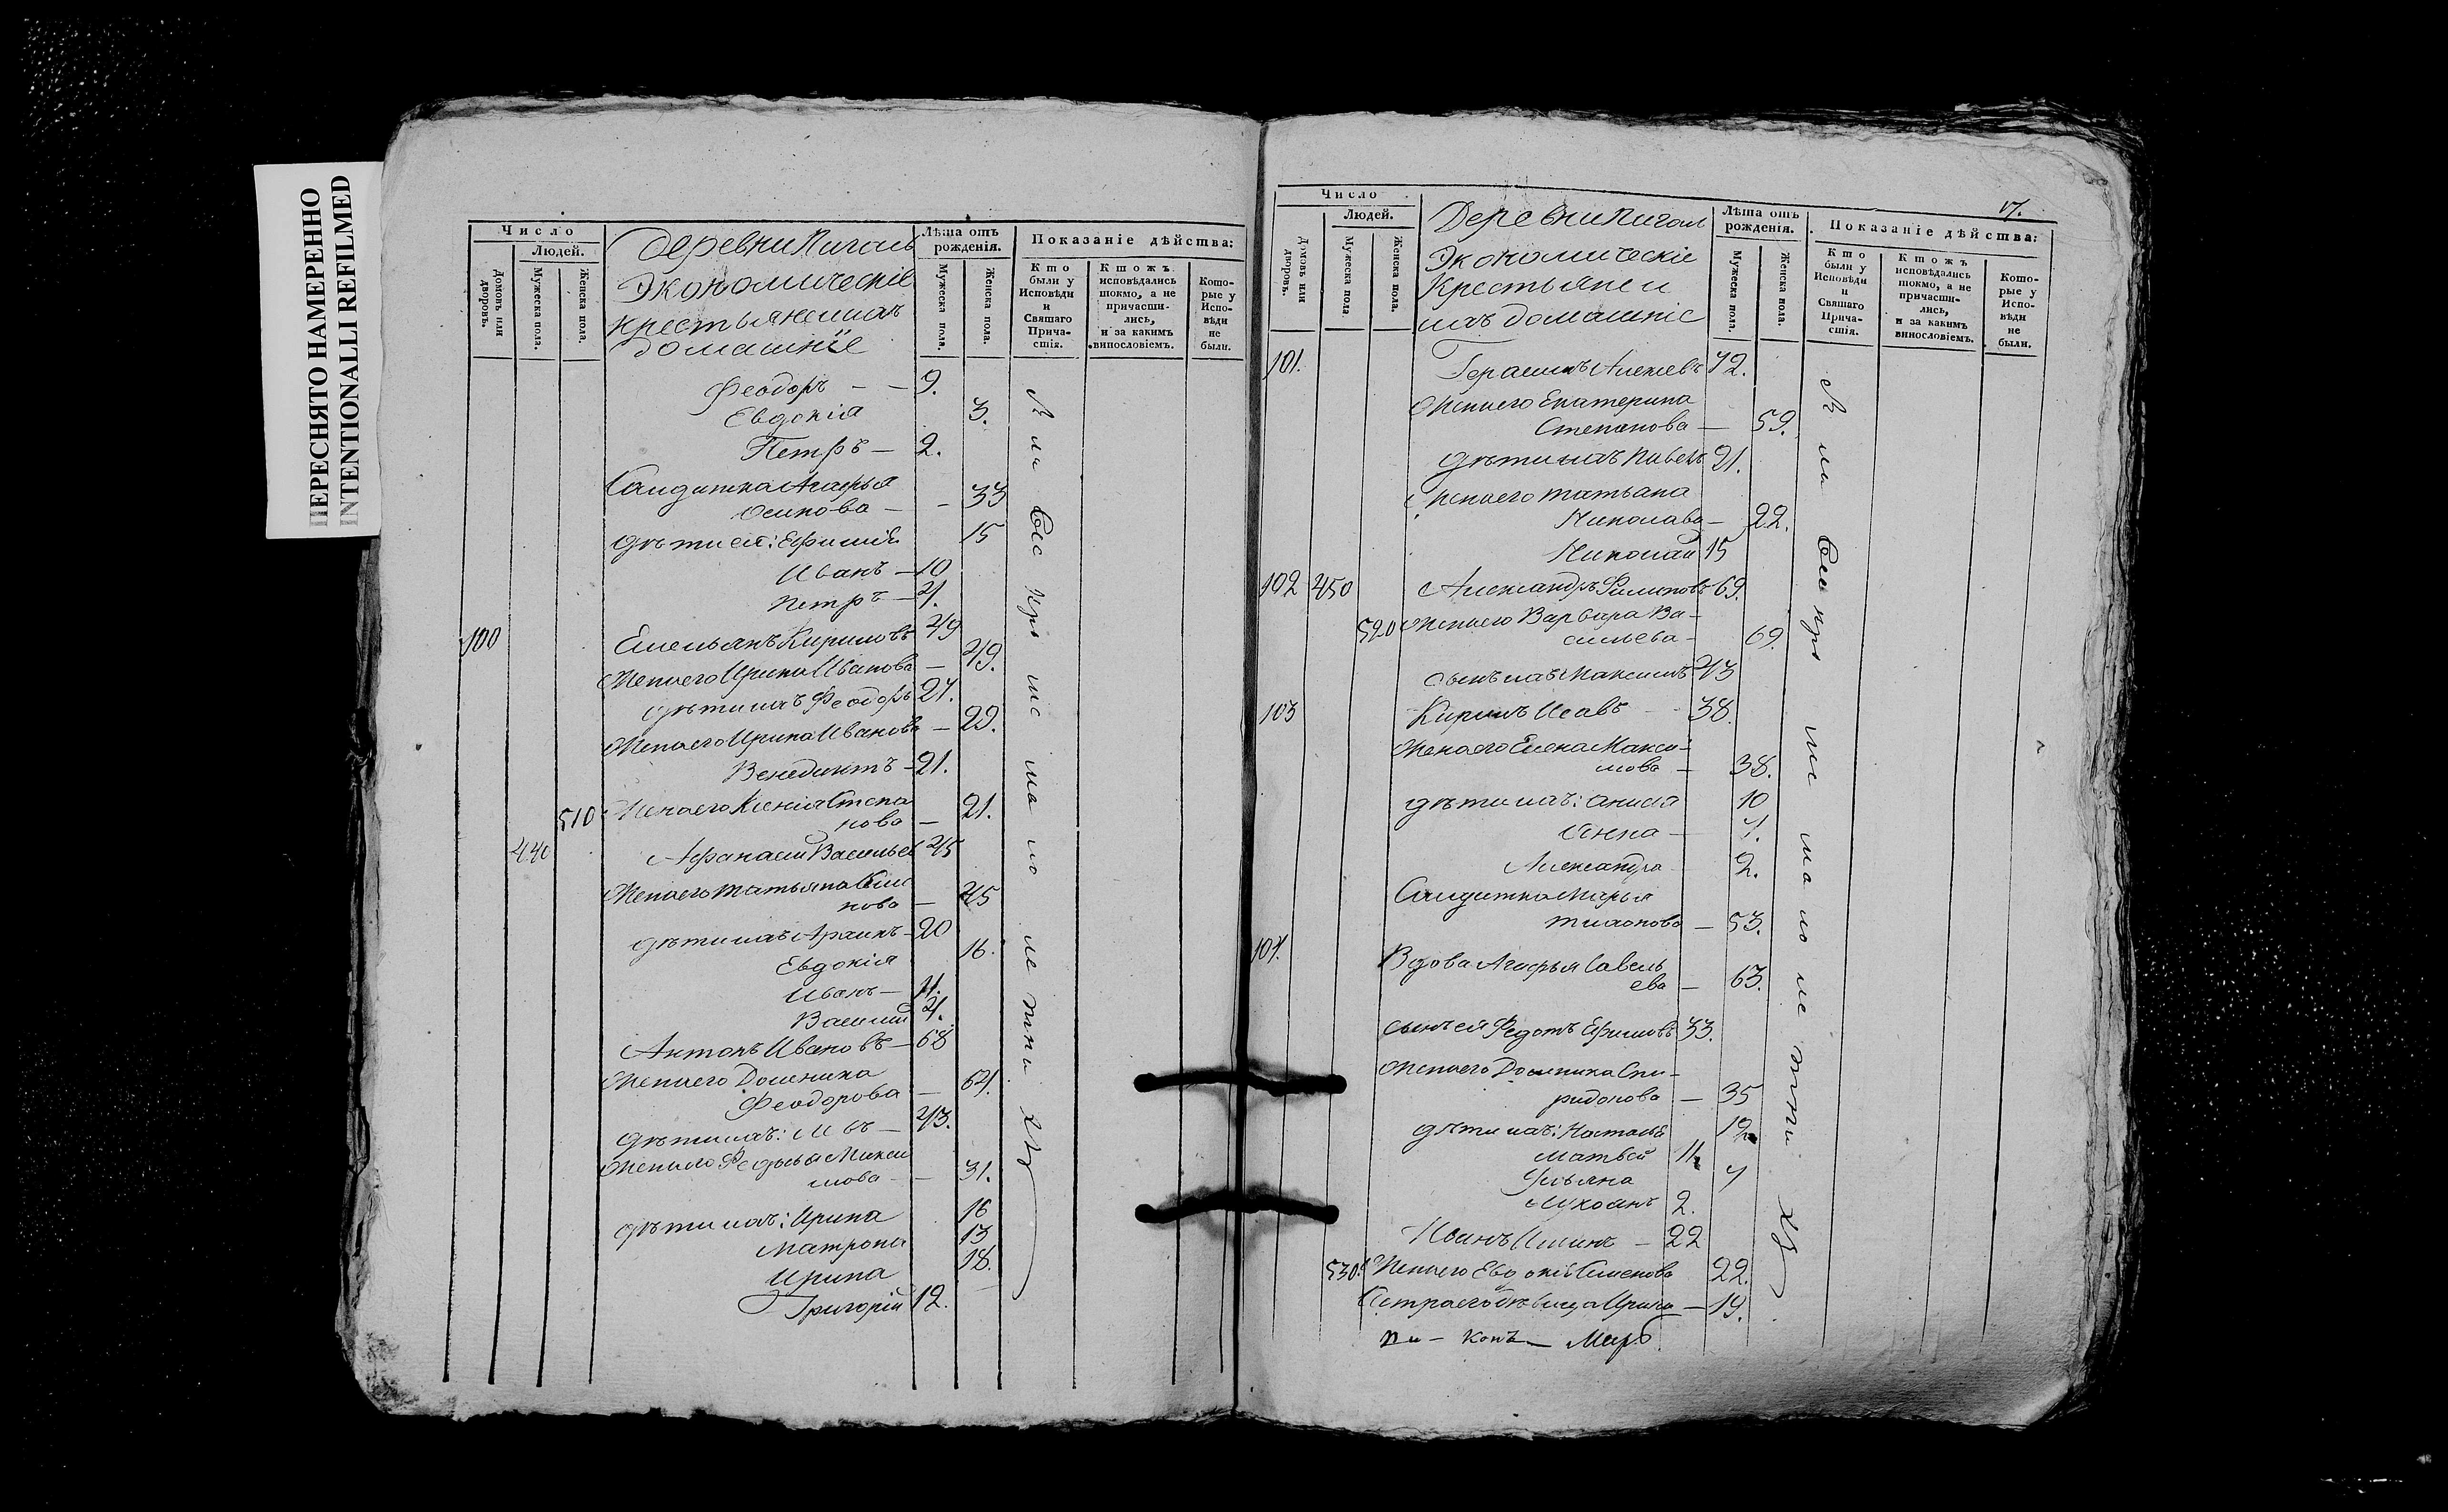 ПЕРЕСНЯТО НАМЕРЕННО
INTENTIONALLI REFILMED
Число
Людей.
Домовъ или дворовъ.
Мужеска пола.
Женска пола.
Деревни Пигаль
Экономическіе
крестьяне и ихъ
домашніе
Лѣта отъ рожденія.
Мужеска пола.
Женска пола.
Показаніе дѣйства:
Кто были у Исповѣди и Святаго Прича-стія.
Ктожъ исповѣдались токмо, а не причасти-лись, и за какимъ винословіемъ.
Кото-рые у Испо-вѣди не были.
Феодоръ — — 9.
Евдокія 3.
Петръ — 2.
Салдатка Агафья
Осипова — — 33
дѣти ея: Ефимія 15
Иванъ — 10
Петръ — 4.
100 Емельянъ Кириловъ 49
Жена его Ирина Иванова — 49.
дѣти ихъ Феодоръ 27.
Жена его Ирина Иванова — 29.
Венедиктъ — 21.
510 Жена его Ксенія Степа
нова — 21.
440 Афанасій Васильев 45
Жена его Татьяна Семе
нова — 45
дѣти ихъ — 20
Евдокія 16.
Иванъ — 11.
Василій 4.
Антонъ Ивановъ — 68
Жена его Доменика
Феодорова — 64.
дѣти ихъ: — 43.
Жена его Федосья Макси
мова — — 31.
дѣти ихъ: Ирина 16
Матрона 13
Ирина 18.
Григорій 12.
17.
Число
Людей.
Домовъ или дворовъ.
Мужеска пола
Женска пола.
Деревни Пигал
Экономическіе
Крестьяне и
ихъ домашніе
Лѣта отъ рожденія.
Мужеска пола.
Женска пола.
Показаніе дѣйства:
Кто были у Исповѣди и Святаго Прича-стія.
Ктожъ исповѣдались токмо, а не причасти-лись, и за какимъ винословіемъ.
Кото-рые у Испо-вѣди не были.
101. Герасимъ Алексѣвъ 72.
Жена его Екатерина
Степанова — 59.
дѣти ихъ Павелъ 21.
Жена его Татьана
Николава — 22.
Николай 15
102 450 Александръ Филиповъ 69.
520 Жена его Варвара Ва-
сильева — 69.
сынъ ихъ Максимъ 43
103 Кирилъ Исавъ — 38.
Жена его Елена Макси-
мова — 38.
дѣти ихъ: Анисія 10
Анна — 7.
Александра 2.
Салдатка Марья
— 53.
104. Вдова Агафья Савель
ева — 63.
сынъ ея Федотъ Ефимовъ 33.
Жена его Доменика Спи-
ридонова — 35
дѣти ихъ: Наталья 12
Матвѣй 11
Ульяна 7
2.
Иванъ — 22
530. Жена его Евдокія Семенова 22.
Сестра его дѣвица Ирина — 19.